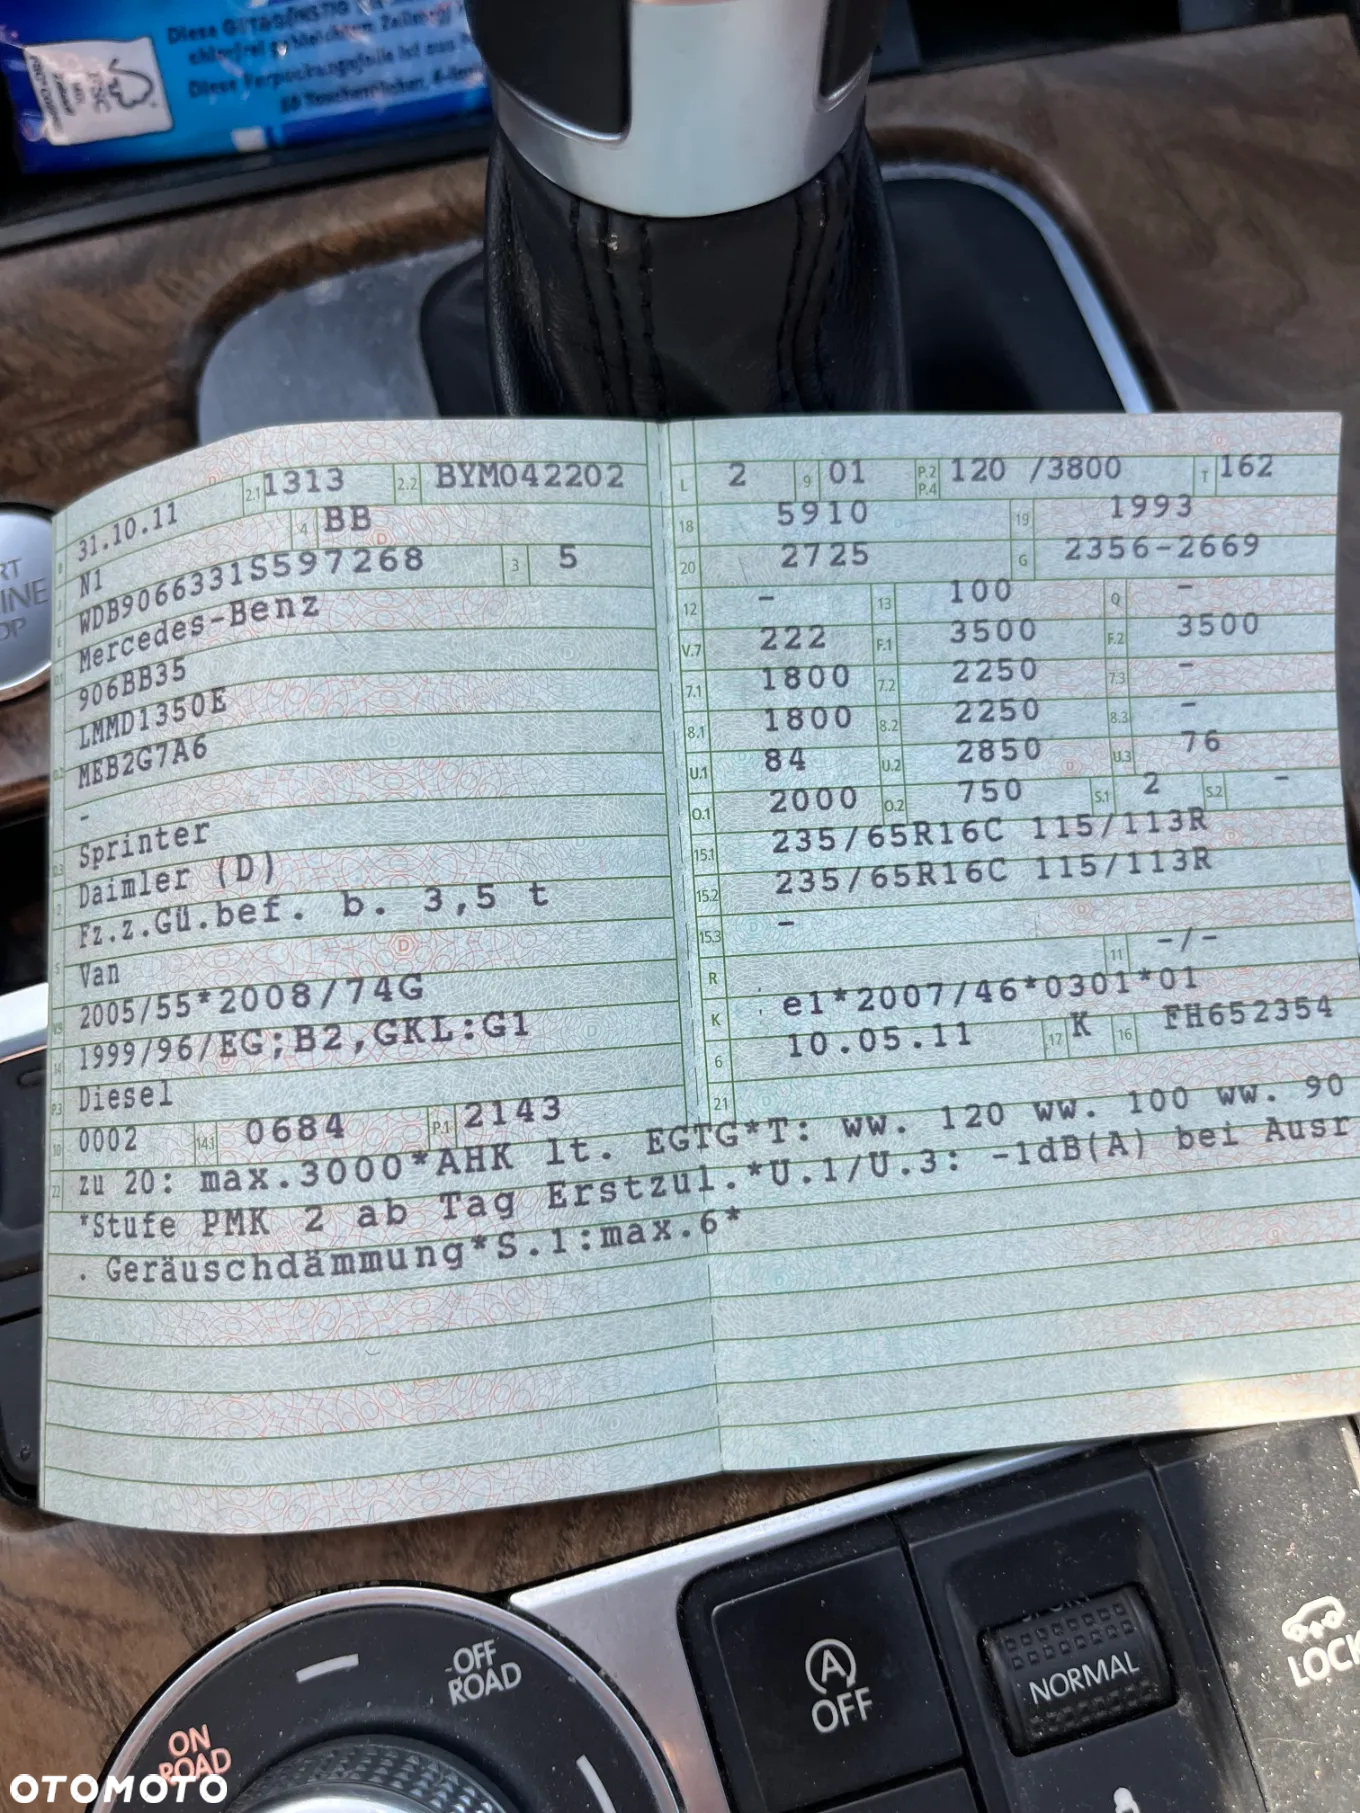 Diese
chlorfrei gebleichtem Zellstoff
Diese Verpackungsfolie ist aus
FSC
B 31.10.11 2.1 1313 2.2 BYM042202
J N1 4 BB
E WDB9066331S597268 3 5
D.1 Mercedes-Benz
906BB35
LMMD1350E
D.2 MEB2G7A6
-
D.3 Sprinter
2 Daimler (D)
5 Fz.z.Gü.bef. b. 3,5 t
Van
V.9 2005/55*2008/74G
14 1999/96/EG;B2,GKL:G1
P.3 Diesel
10 0002 14.1 0684 P.1 2143
L 2 9 01 P.2 P.4 120 /3800 T 162
18 5910 19 1993
20 2725 G 2356-2669
12 - 13 100 Q -
V.7 222 F.1 3500 F.2 3500
7.1 1800 7.2 2250 7.3 -
8.1 1800 8.2 2250 8.3 -
U.1 84 U.2 2850 U.3 76
O.1 2000 O.2 750 S.1 2 S.2 -
15.1 235/65R16C 115/113R
15.2 235/65R16C 115/113R
15.3 -
R 11 -/-
K e1*2007/46*0301*01
6 10.05.11 17 K 16 FH652354
21
22 zu 20: max.3000*AHK lt. EGTG*T: ww. 120 ww. 100 ww. 90
*Stufe PMK 2 ab Tag Erstzul.*U.1/U.3: -1dB(A) bei Ausr
. Geräuschdämmung*S.1:max.6*
OFF
ROAD
ON
ROAD
A
OFF
NORMAL
LOCK
OTOMOTO